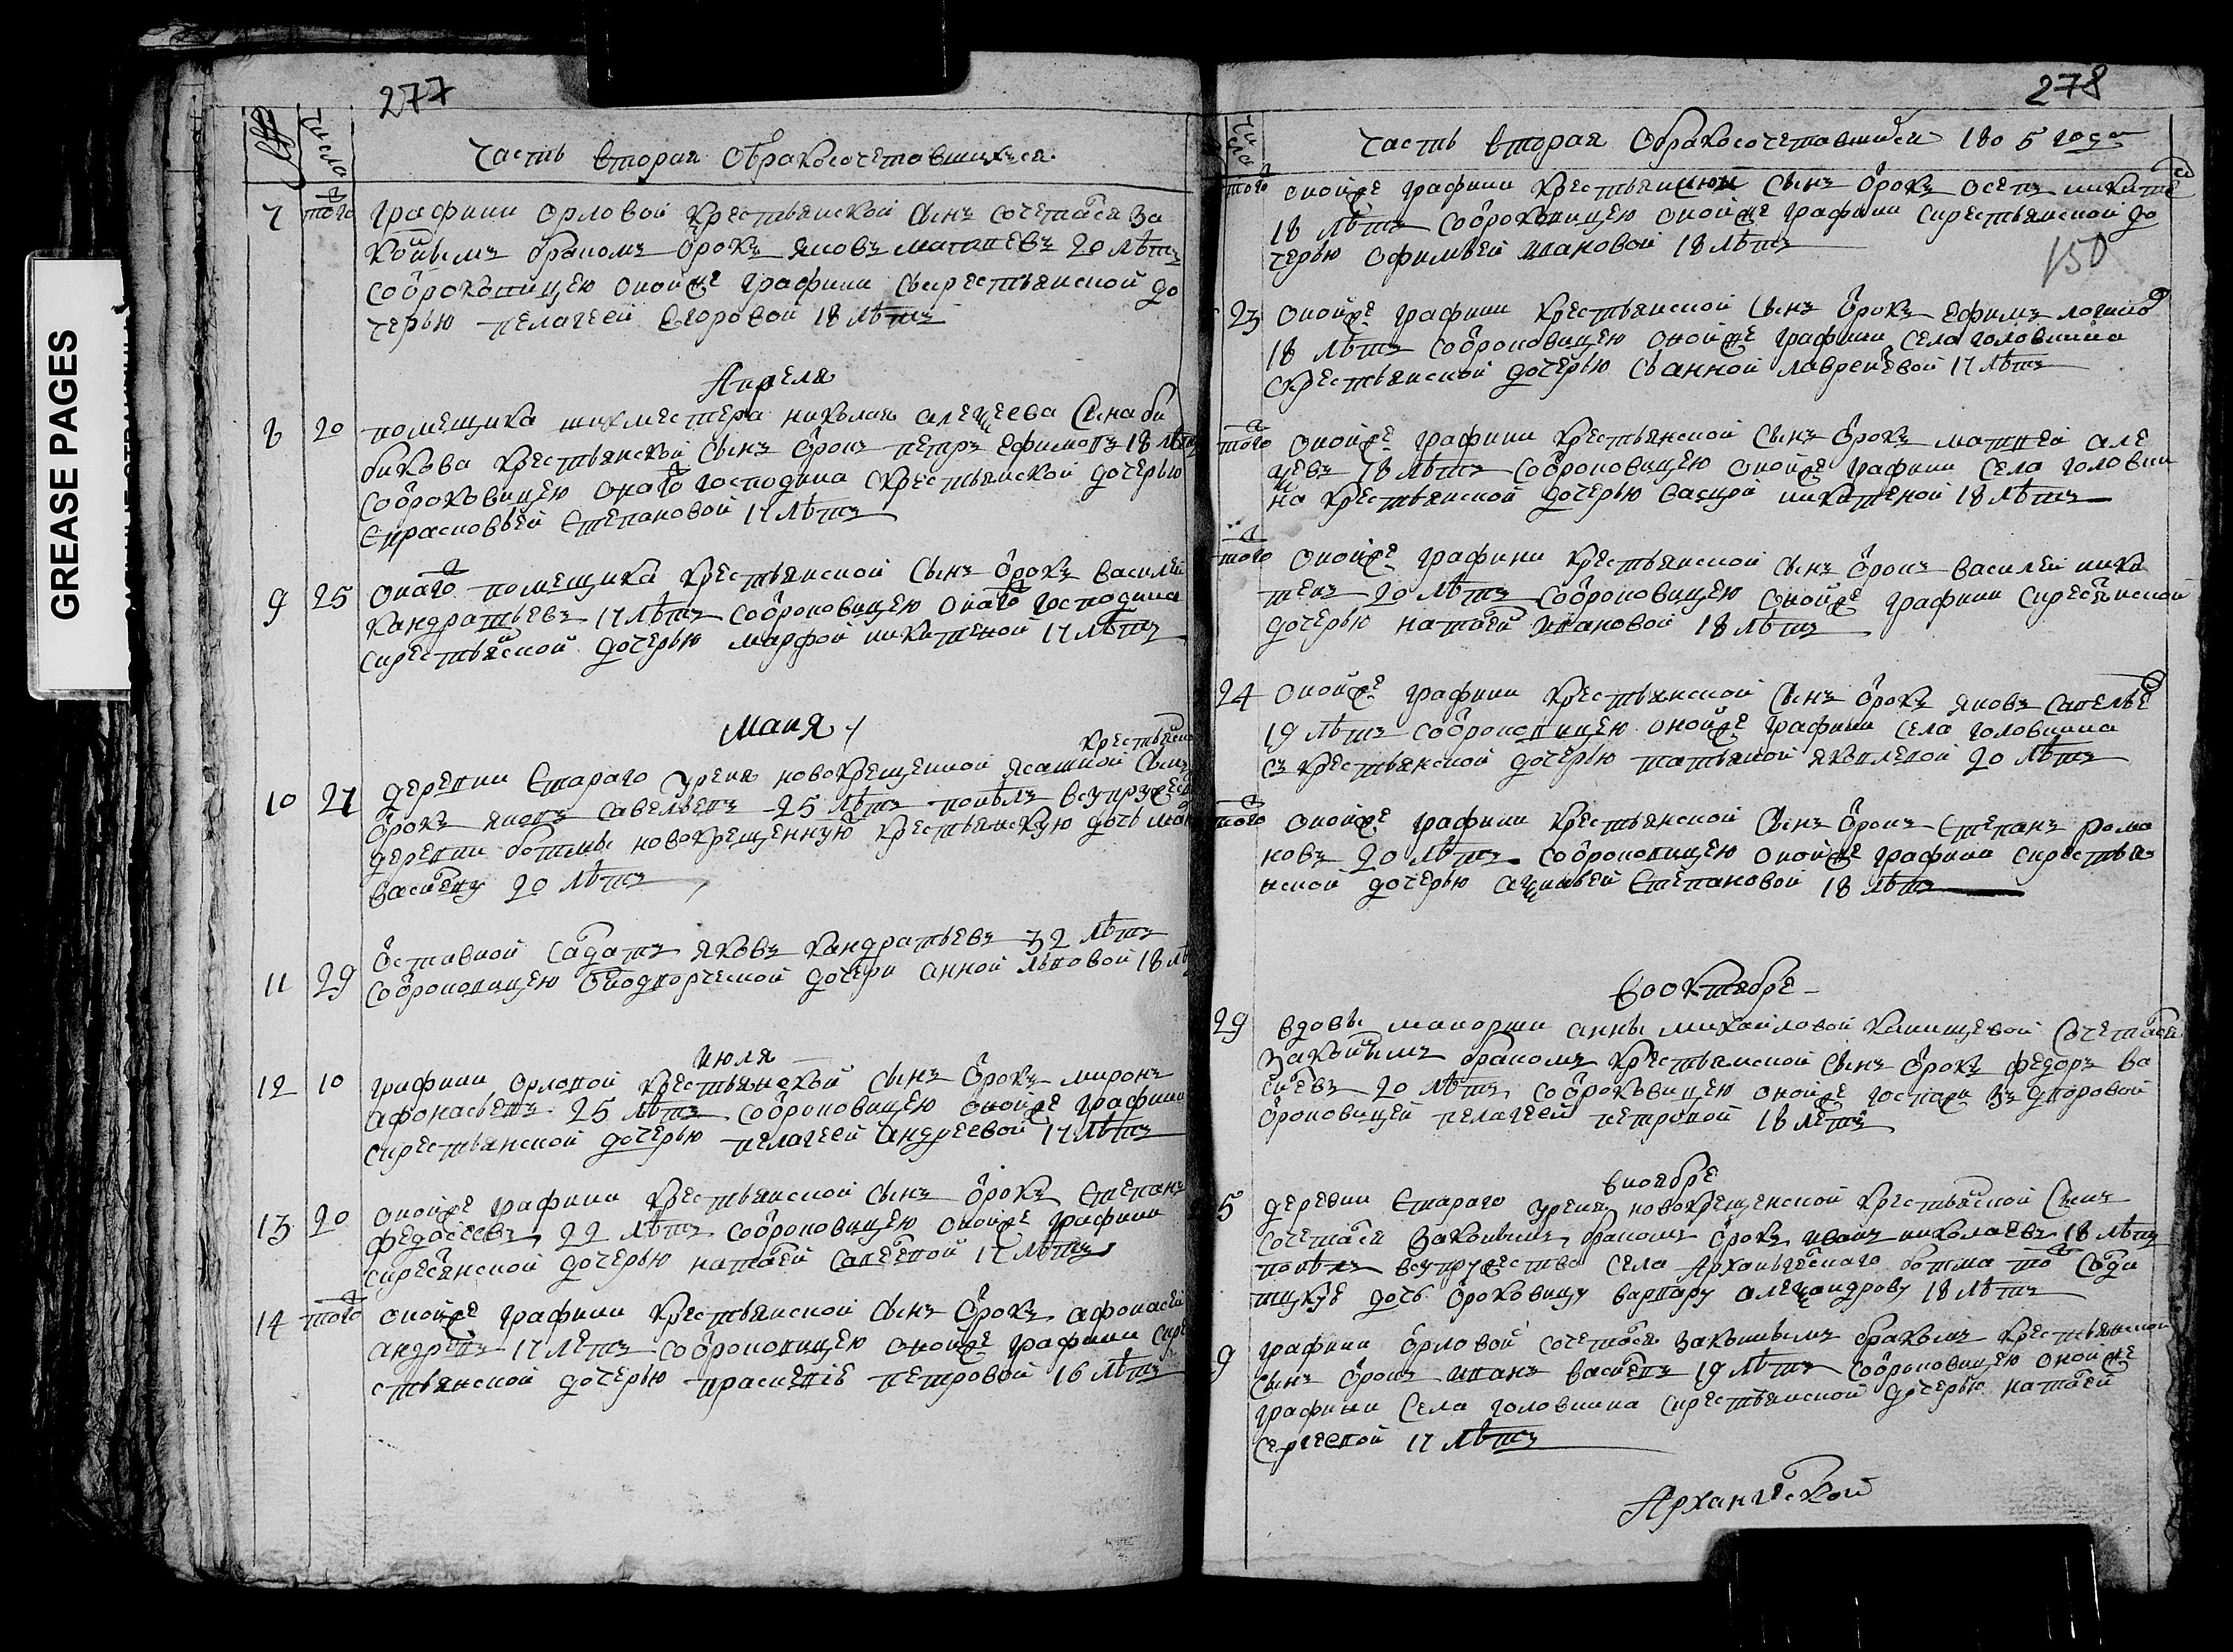 GREASE PAGES
277
числа
Часть вторая обракосочетавшихся
7 того графини Орловой крестьянской сынъ сочетася за
коннымъ бракомъ отрокъ яковъ матвѣевъ 20 лѣтъ
сотроковицею оной же графини скрестьянской до
черью пелагеей Егоровой 18 лѣтъ
Апреля
8 20 помещика николая алеѯеева сына би
бикова крестьянской сынъ отрокъ петръ ефимовъ 18 лѣтъ
сотроковицею онаго господина скрестьянской дочерью
Степановой 17 лѣтъ
9 25 онаго помещика крестьянской сынъ отрокъ василей
кандратьевъ 17 лѣтъ сотроковицею онаго господина
скрестьянской дочерью марфой никитеной 17 лѣтъ
Маия
крестьянской
10 27 деревни Стараго урени новокрещенной ясашной сынъ
отрокъ яковъ савельевъ 25 лѣтъ поялъ всупружество
деревни ботмы новокрещенную крестьянскую дочь
васильеву 20 лѣтъ
11 29 отставной салдатъ яковъ кандратьевъ 32 лѣтъ
сотроковицею дочери анной львовой 18 лѣтъ
июля
12 10 графини орловой крестьянской сынъ отрокъ миронъ
афонасьевъ 25 лѣтъ сотроковицею оной же графини
скрестьянской дочерью пелагеей андреевой 17 лѣтъ
13 20 оной же графини крестьянской сынъ отрокъ Степанъ
федосеевъ 22 лѣтъ сотроковицею оной же графини
скрестьянской дочерью натальей савельевой 17 лѣтъ
14 того оной же графини крестьянской сынъ отрокъ афонасей
андреевъ 17 летъ сотроковицею оной же графини скре
стьянской дочерью петровой 16 лѣтъ
278
числа
Часть вторая Обракосочетавшийся 1805 года
того оной же графини крестьянской сынъ отрокъ осепъ никитевъ
18 лѣтъ сотроковицею оной же графини скрестьянской до
черью офимьей ивановой 18 лѣтъ
150
23 оной же графини крестьянской сынъ отрокъ ефимъ логиновъ
18 лѣтъ сотроковицею оной же графини села головина
скрестьянской дочерью съ анной лаврентевой 17 лѣтъ
того оной же графини крестьянской сынъ отрокъ матвей але
ѯеевъ 18 лѣтъ сотроковицею оной же графини села голови
на крестьянской дочерью никитеной 18 лѣтъ
того оной же графини крестьянской сынъ отрокъ василей ники
тевъ 20 лѣтъ сотроковицею оной же графини скрестьянской
дочерью натальей ивановой 18 лѣтъ
24 оной же графини крестьянской сынъ отрокъ яковъ савельевъ
19 лѣтъ сотроковицею оной же графини села головина
съ крестьянской дочерью татьяной яковлевой 20 лѣтъ
того оной же графини крестьянской сынъ отрокъ Степанъ рома
новъ 20 лѣтъ сотроковицею оной же графини скрестья
нской дочерью Степановой 18 лѣтъ
Вооктябре
29 вдовы маиорши анны михаиловой сочетася
законнымъ бракомъ крестьянской сынъ отрокъ федоръ ва
сильевъ 20 лѣтъ сотроковицею оной же госпожи здворовой
отроковицей пелагеей петровой 18 летъ
вноябре
5 деревни Стараго урени новокрещенской крестьянской сынъ
сочетася законнымъ бракомъ отрокъ иванъ николаевъ 18 лѣтъ
поялъ всупружество села Архангельского ботма тожъ
дочь отроковицу варвару алеѯандрову 18 лѣтъ
9 графини орловой сочетася законнымъ бракомъ крестьянской
сынъ отрокъ иванъ васильевъ 19 лѣтъ сотроковицею оной же
графини села головина скрестьянской дочерью натальей
сергеевой 17 лѣтъ
Архангельской